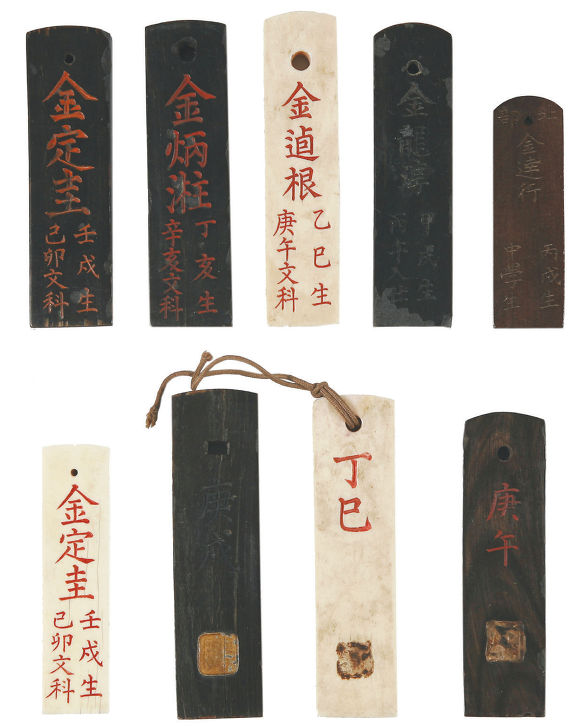 金定圭
壬戌生
己卯文科
金炳
丁亥生
辛亥文科
金逌根
乙巳生
庚午文科
金龍
甲戌生
丙午入仕
北部
金達行
丙戌生
中學生
金定圭
壬戌生
己卯文科
庚戌
丁巳
庚午